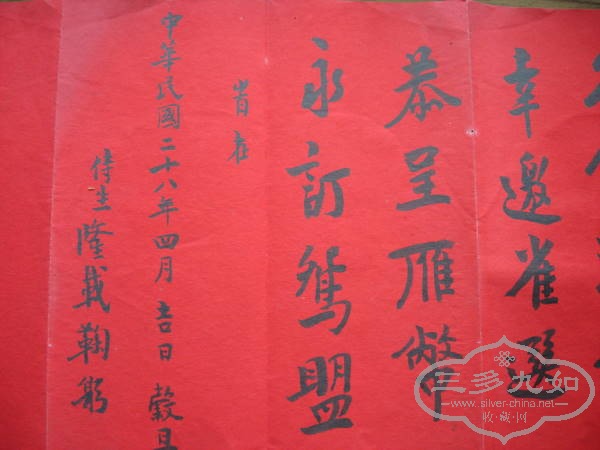 幸邀雀選
恭呈雁幣
永訂鴛盟
肯在
中華民國二十八年四月吉日穀旦
侍生隆載鞠躬
三多九如
www.silver-china.net
收·藏·网